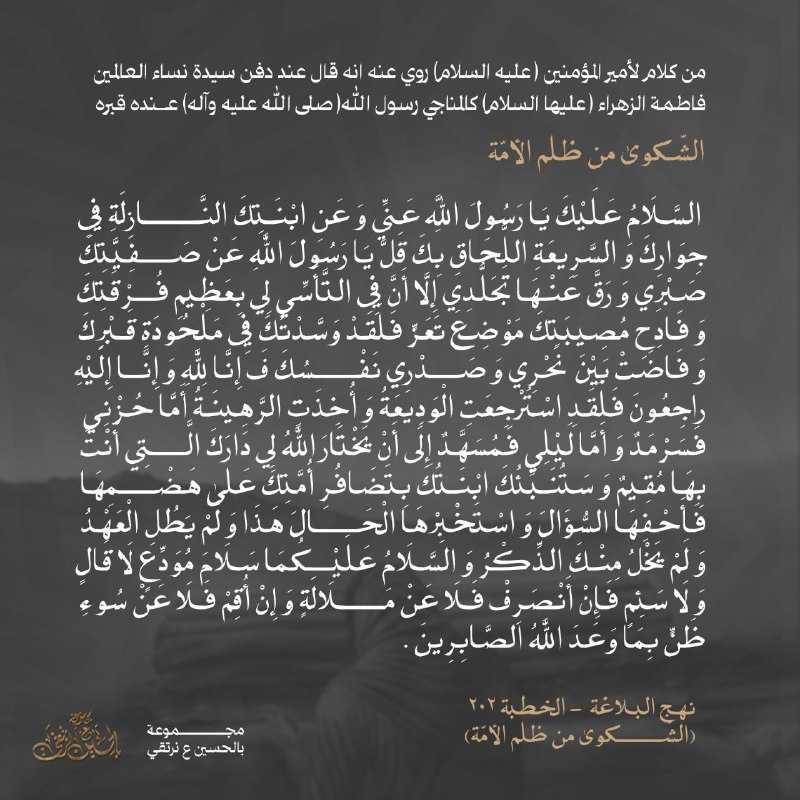 من كلام لأمير المؤمنين (عليه السلام) روي عنه انه قال عند دفن سيدة نساء العالمين
فاطمة الزهراء (عليها السلام) كالمناجي رسول الله(صلى الله عليه وآله) عنده قبره
الشّكوىٰ من ظلم الأمّة
السَّلامُ عَلَيْكَ يَا رَسُولَ اللَّهِ عَنِّي وَ عَنِ ابْنَتِكَ النَّازِلَةِ فِي
جِوَارِكَ وَ السَّرِيعَةِ اللَّحَاقِ بِكَ قَلَّ يَا رَسُولَ اللَّهِ عَنْ صَفِيَّتِكَ
صَبْرِي وَ رَقَّ عَنْهَا تَجَلُّدِي إِلَّا أَنَّ فِي التَّأَسِّي لِي بِعَظِيمِ فُرْقَتِكَ
وَ فَادِحِ مُصِيبَتِكَ مَوْضِعَ تَعَزٍّ فَلَقَدْ وَسَّدْتُكَ فِي مَلْحُودَةِ قَبْرِكَ
وَ فَاضَتْ بَيْنَ نَحْرِي وَ صَدْرِي نَفْسُكَ فَ إِنَّا لِلَّهِ وَ إِنَّا إِلَيْهِ
راجِعُونَ فَلَقَدِ اسْتُرْجِعَتِ الْوَدِيعَةُ وَ أُخِذَتِ الرَّهِينَةُ أَمَّا حُزْنِي
فَسَرْمَدٌ وَ أَمَّا لَيْلِي فَمُسَهَّدٌ إِلَى أَنْ يَخْتَارَ اللَّهُ لِي دَارَكَ الَّتِي أَنْتَ
بِهَا مُقِيمٌ وَ سَتُنَبِّئُكَ ابْنَتُكَ بِتَضَافُرِ أُمَّتِكَ عَلَى هَضْمِهَا
فَأَحْفِهَا السُّؤَالَ وَ اسْتَخْبِرْهَا الْحَالَ هَذَا وَ لَمْ يَطُلِ الْعَهْدُ
وَ لَمْ يَخْلُ مِنْكَ الذِّكْرُ وَ السَّلامُ عَلَيْكُمَا سَلامَ مُوَدِّعٍ لا قَالٍ
وَ لا سَئِمٍ فَإِنْ أَنْصَرِفْ فَلَا عَنْ مَلَالَةٍ وَ إِنْ أُقِمْ فَلَا عَنْ سُوءِ
ظَنٍّ بِمَا وَعَدَ اللَّهُ الصَّابِرِينَ .
نهج البلاغة – الخطبة ٢٠٢
(الشكوىٰ من ظلم الأمّة)
مجموعة
بالحسين ع نرتقي